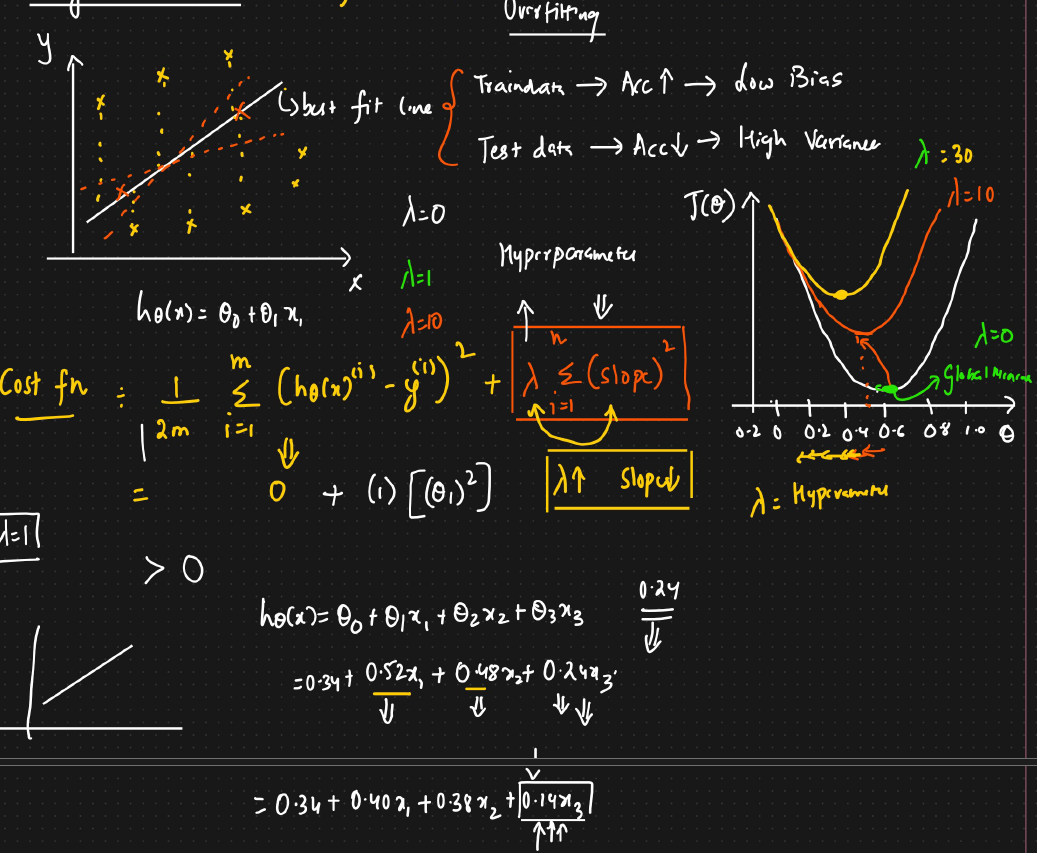 Overfitting
y
best fit line
Traindata → Acc ↑ → Low Bias
Test data → Acc ↓ → High Variance
x
λ=0
λ=1
λ=10
Hyperparameter
hθ(x) = θ0 + θ1 x1
Cost fn = 1/2m m Σ i=1 (hθ(x)^(i) - y^(i))^2 + λ n Σ i=1 (slope)^2
= 0 + (1) [(θ1)^2]
λ↑ Slope↓
λ=1
> 0
J(θ)
λ = 30
λ=10
λ=0
Global Minima
0.2 0 0.2 0.4 0.6 0.8 1.0 θ
λ =
hθ(x) = θ0 + θ1x1 + θ2x2 + θ3x3
0.24
= 0.34 + 0.52x1 + 0.48x2 + 0.24x3
= 0.34 + 0.40x1 + 0.38x2 + 0.14x3